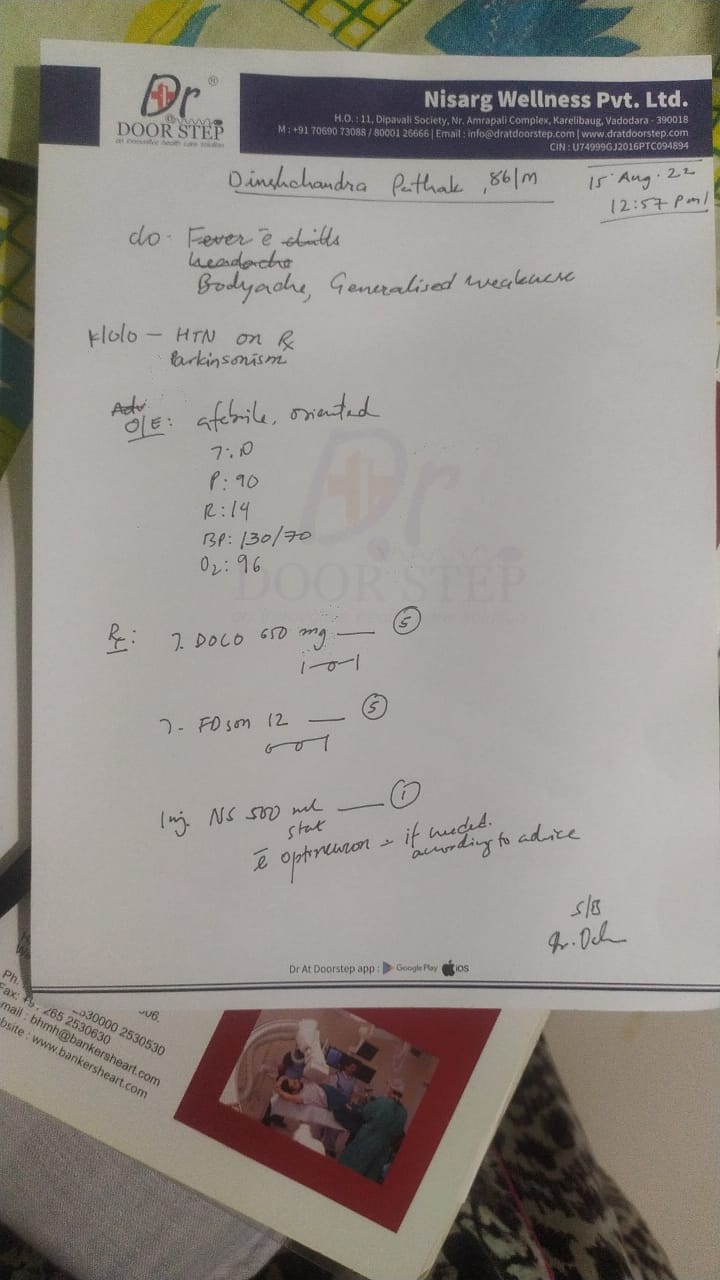 Dr ®
DOOR STEP
an innovative health care solution
Nisarg Wellness Pvt. Ltd.
H.O. : 11, Dipavali Society, Nr. Amrapali Complex, Karelibaug, Vadodara - 390018
M : +91 70690 73088 / 80001 26666 | Email : info@dratdoorstep.com | www.dratdoorstep.com
CIN : U74999GJ2016PTC094894
Dinshchandra Pathak, 86/M
15 Aug. 22
12:57 Pm
c/o. Fever c̄ chills
headache
Bodyache, Generalised weakness
K/c/o — HTN on Rx
Parkinsonism
Adv
O/E: afebrile, oriented
T: N
P: 90
R: 14
BP: 130/70
O2: 96
Dr
DOOR STEP
Rx: T. DOLO 650 mg — 5
1-0-1
T. FDson 12 — 5
0-0-1
Inj. NS 500 ml — 1
stat
c̄ optineuron - if needed.
according to advice
S/B
Dr.
Dr At Doorstep app : Google Play iOS
06.
2530000 2530530
Ph.
Fax: 265 2530630
mail : bhmh@bankersheart.com
bsite : www.bankersheart.com